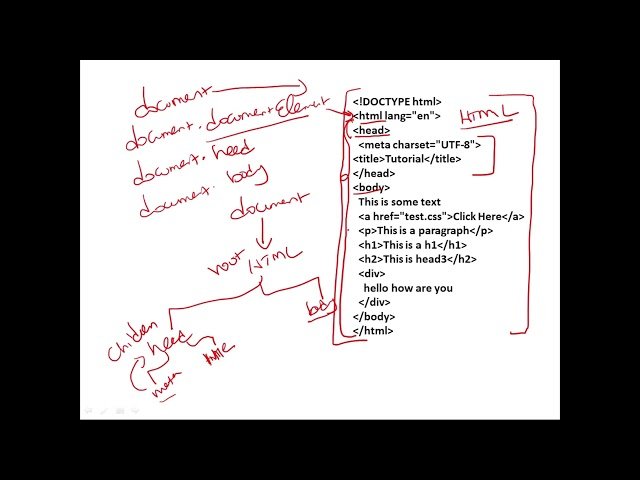 document
document.documentElement
document.head
document.body
document
root HTML
children
head
body
meta
title
HTML
<!DOCTYPE html>
<html lang="en">
<head>
<meta charset="UTF-8">
<title>Tutorial</title>
</head>
<body>
This is some text
<a href="test.css">Click Here</a>
<p>This is a paragraph</p>
<h1>This is a h1</h1>
<h2>This is head3</h2>
<div>
hello how are you
</div>
</body>
</html>